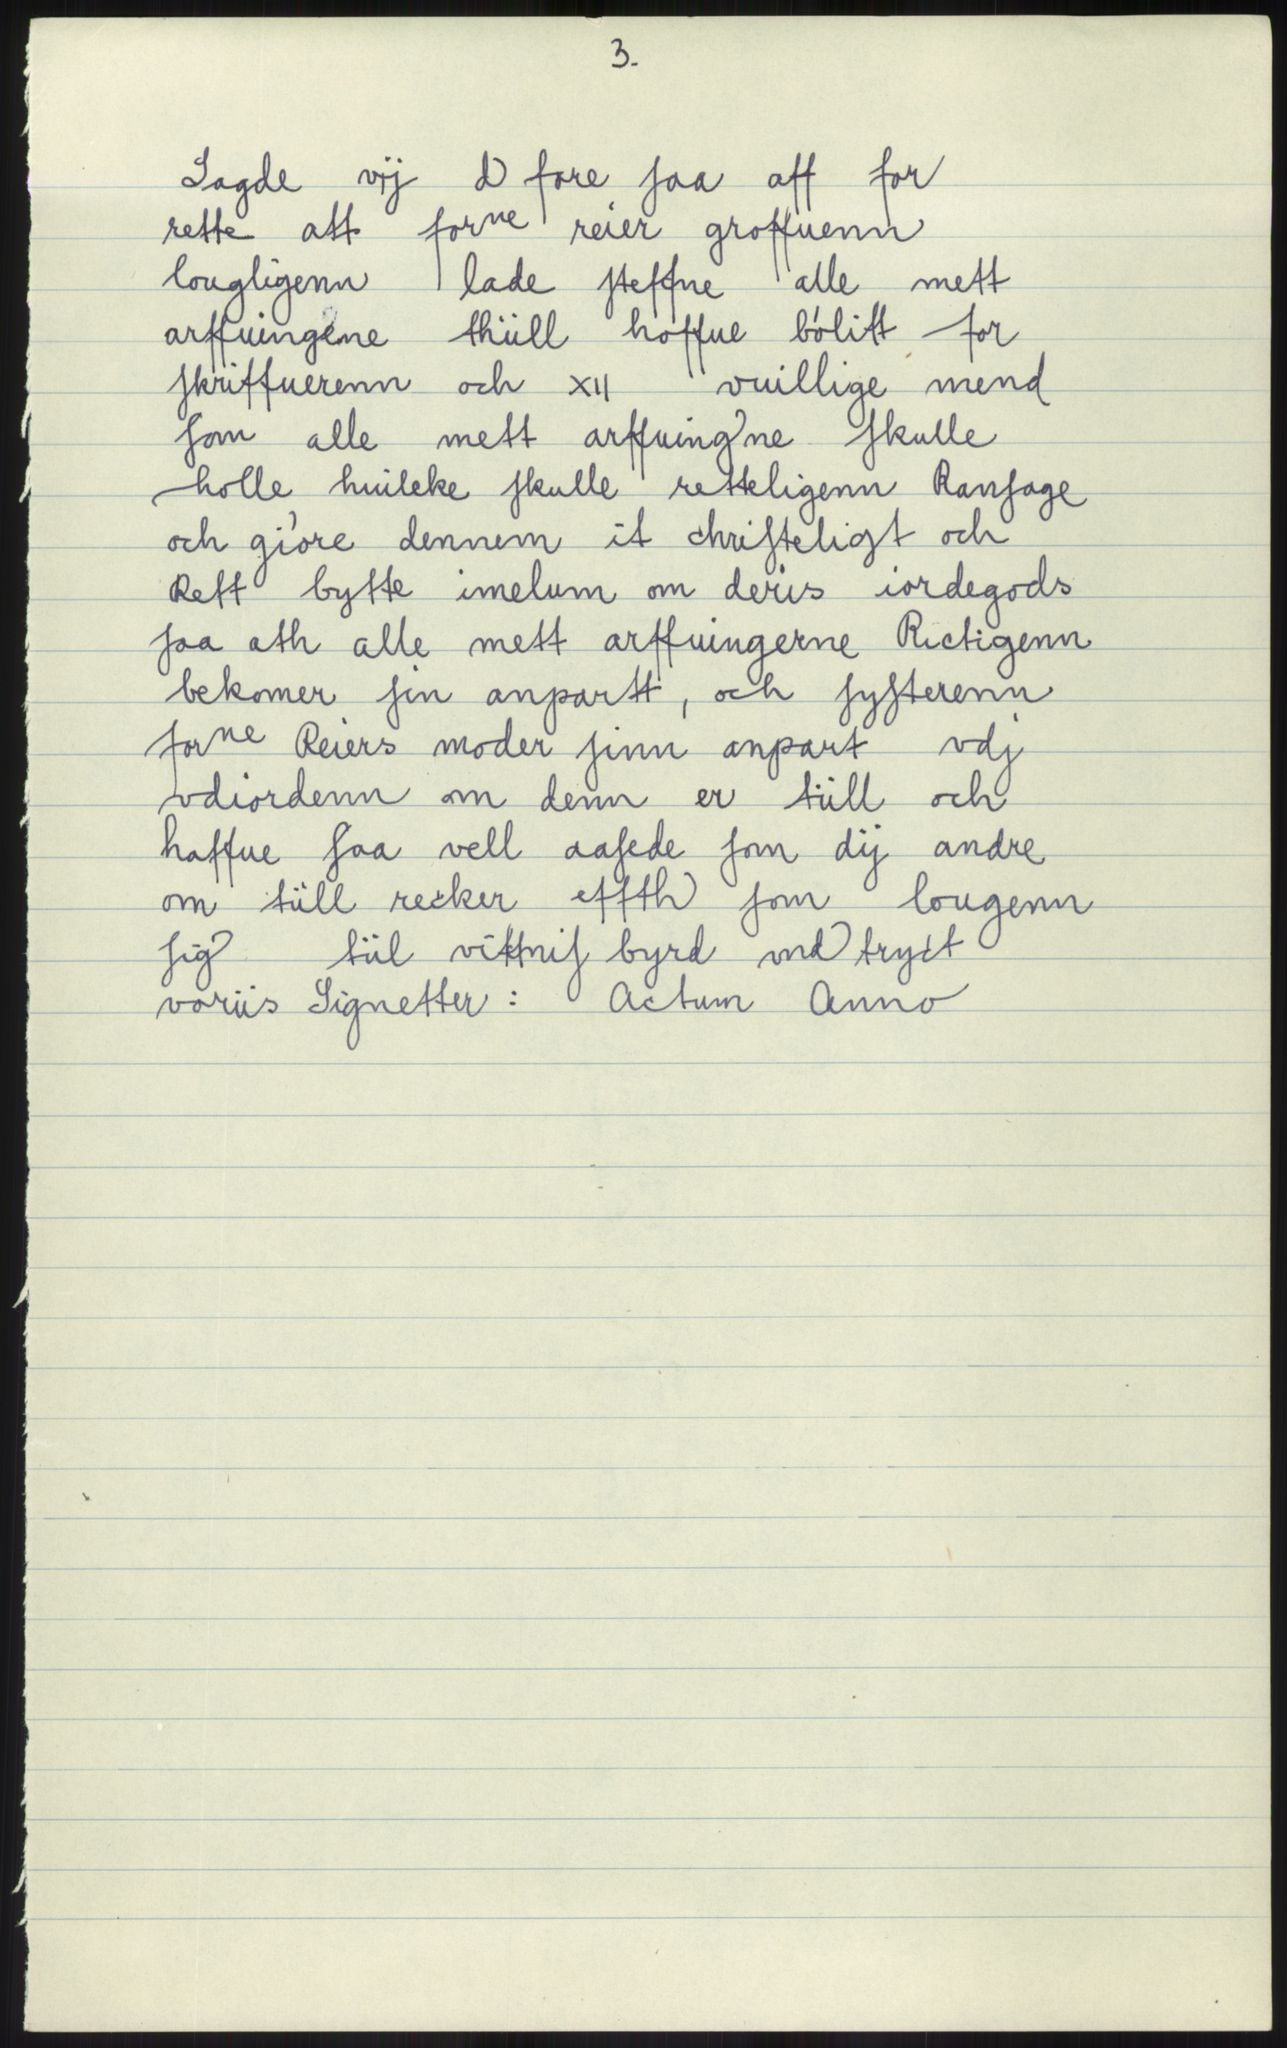 3.
Sagde vÿj d fore ſaa aff for
rette att forne reier groffuenn
lougligenn lade ſteffne alle mett
arffuingene thüll hoffue bólitt for
ſkriffuerenn och XII vuillige mend
ſom alle mett arffuing'ne ſkulle
holle huileke ſkulle retteligenn Ranſage
och gióre dennem it chriſteligt och
Rett bytte imelum om deris iordegods
ſaa ath alle mett arffuingerne Rictigenn
bekomer ſin anpartt, och ſyſterenn
forne Reiers moder ſinn anpart vdj
vdiordenn om denn er tüll och
haffue ſaa vell aaſede ſom dÿ andre
om tüll recker effth ſom lougenn
ſig tül vittniſ byrd vnd tryct
voriis Signetter: Actum Anno